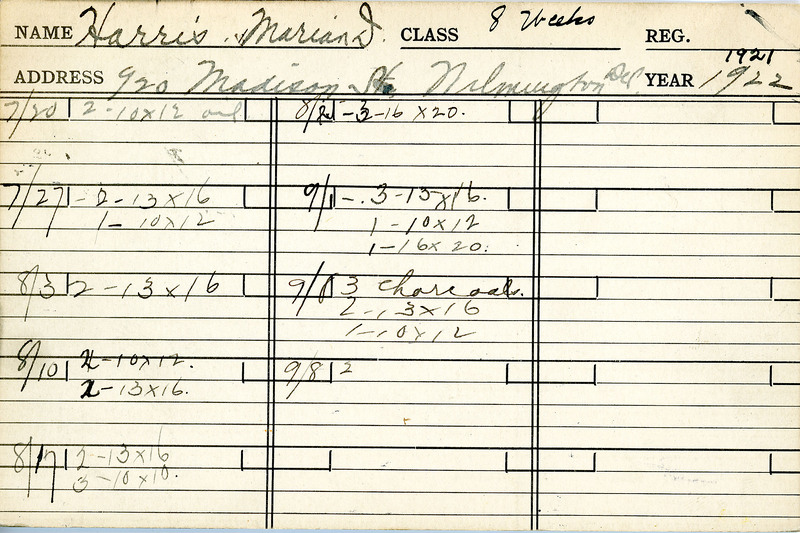 NAME Harris. Marian D. CLASS 8 Weeks REG.
1921
ADDRESS 920 Madison St. Wilmington Del. YEAR 1922
7/20 2-10x12 oil
7/27 - 2-13x16
1-10x12
8/3 2-13x16
8/10 2-10x12.
2-13x16.
8/17 2-13x16
3-10x10.
8/ -3-16 x20.
9/1 -. 3-13x16.
1-10x12
1-16x20.
9/ 3 charcoals.
2-13x16
1-10x12
9/8 2